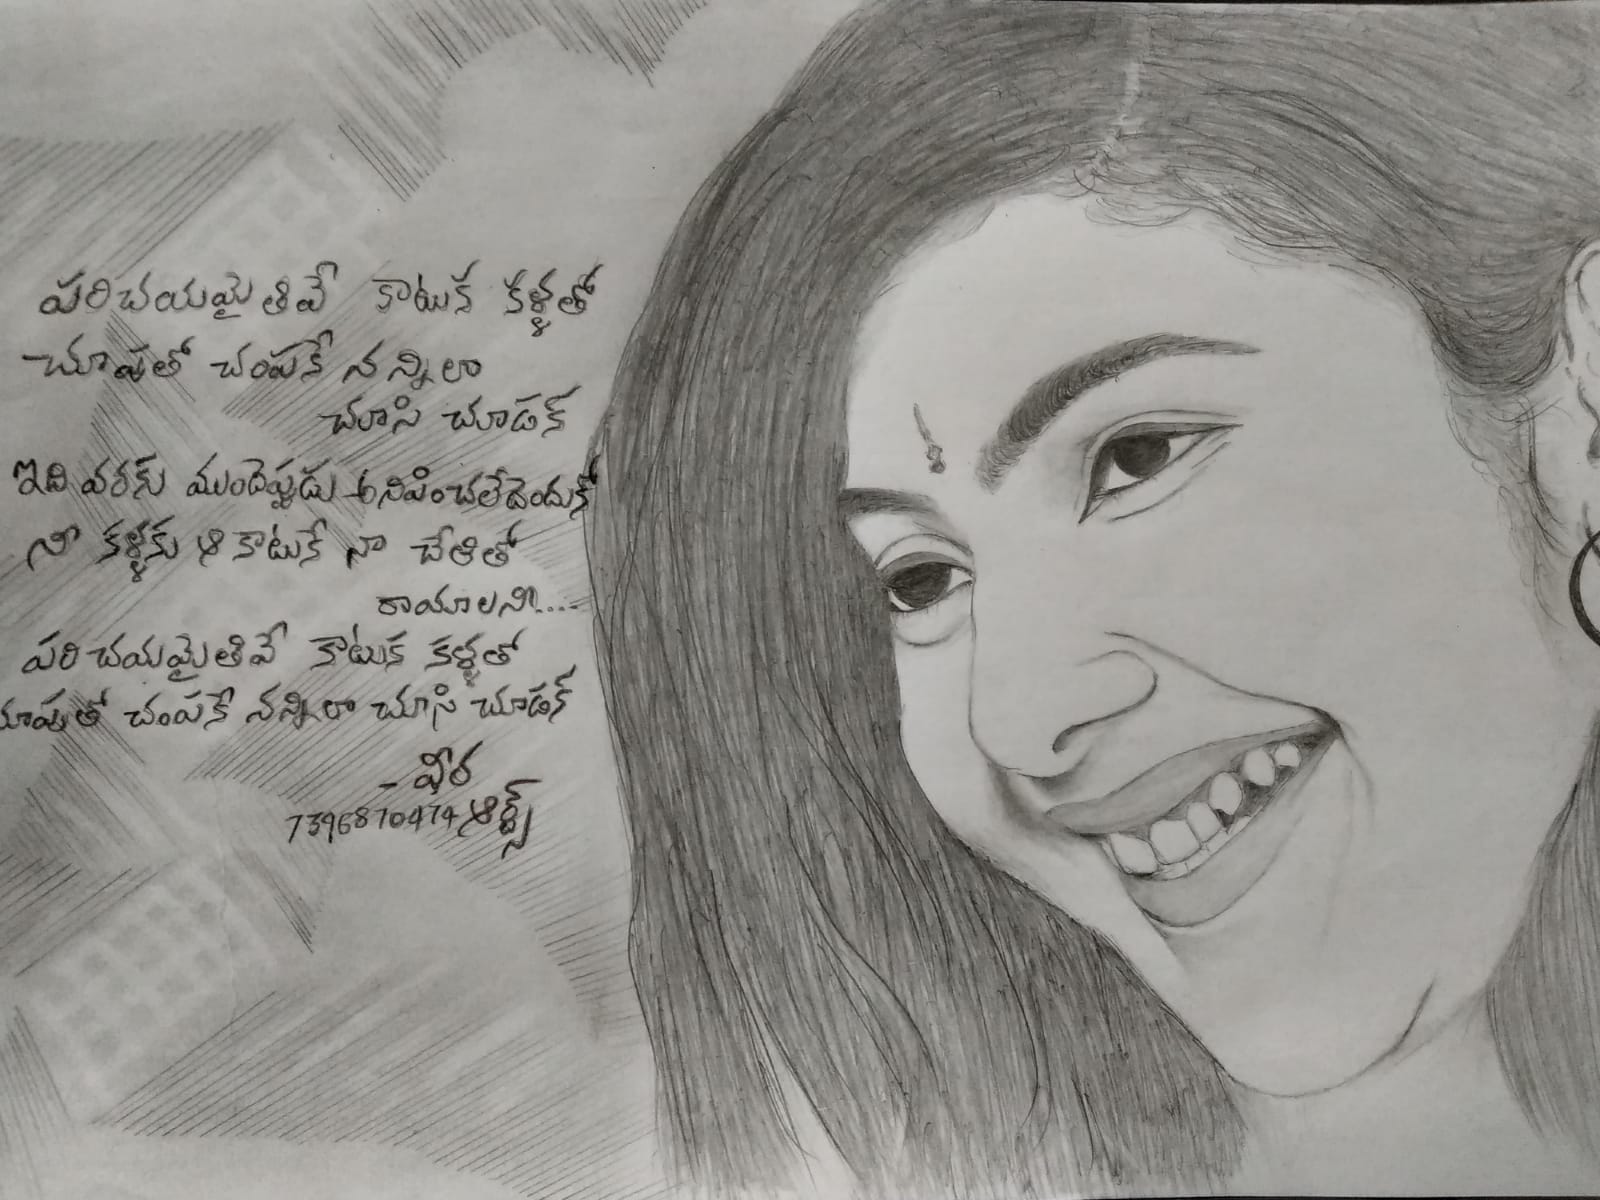 పరిచయమైతివే కాటుక కళ్ళతో
చూపుతో చంపకే నన్నిలా
చూసి చూడక్
ఇది వరకు ముందెప్పుడు అనిపించలేదెందుకో
నీ కళ్ళకు ఆ కాటుకే నా చేతితో
రాయాలని....
పరిచయమైతివే కాటుక కళ్ళతో
చూపుతో చంపకే నన్నిలా చూసి చూడక్
- వీర
7396870474 ఆర్ట్స్